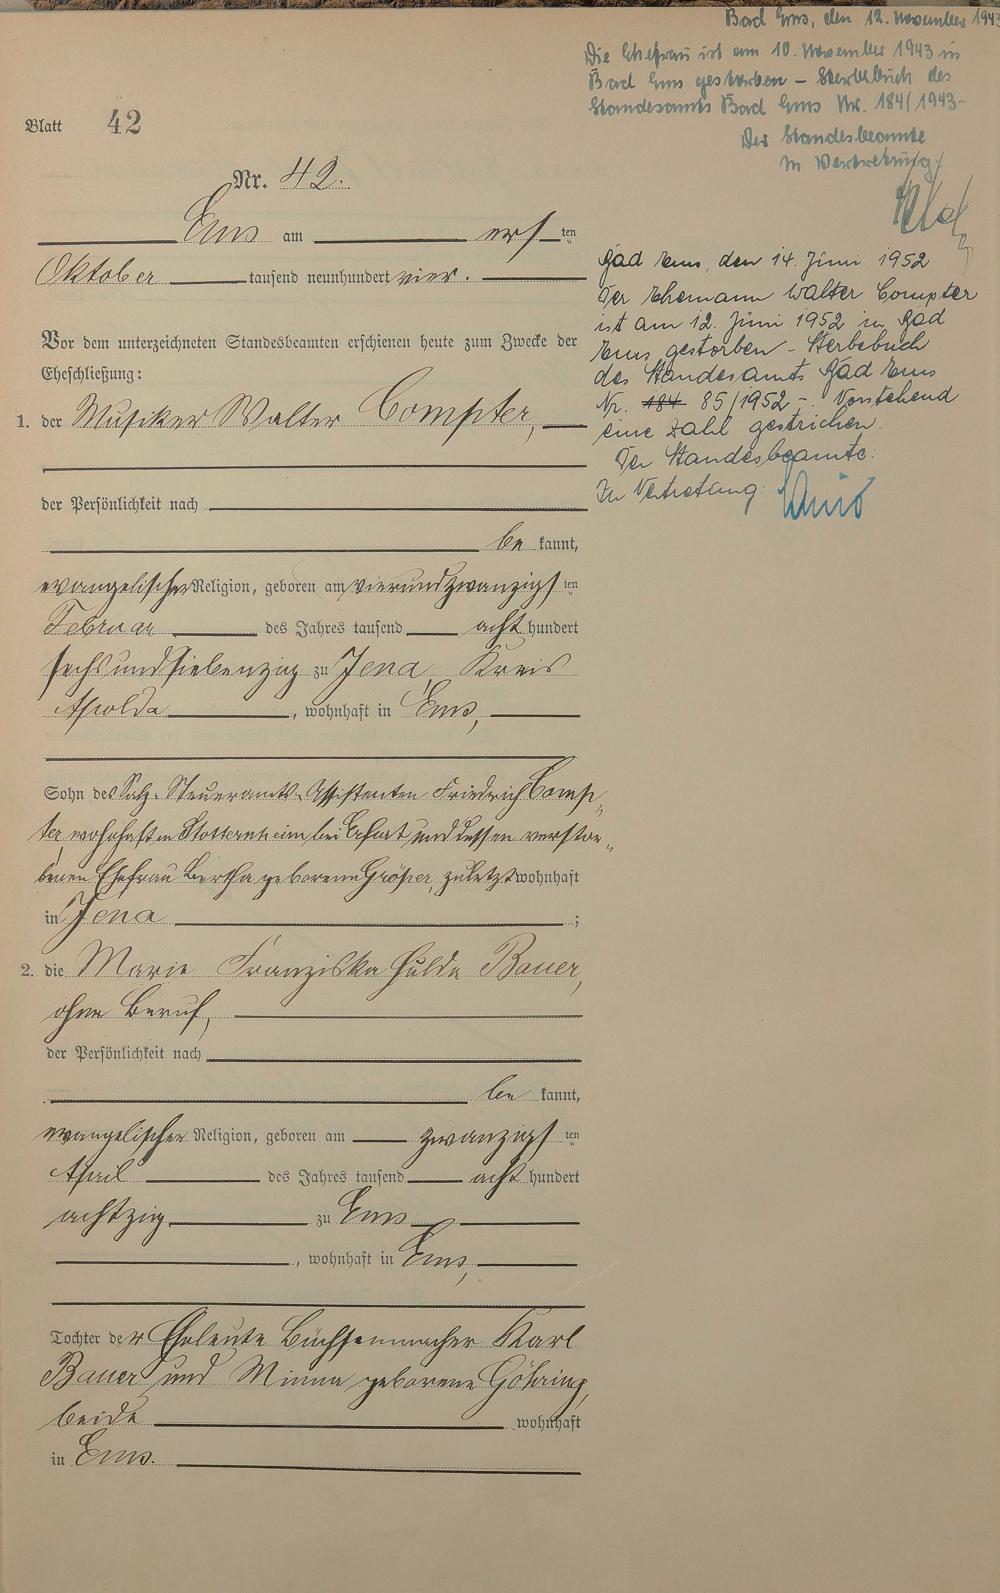 Blatt 42
Nr. 42.
Ems am erſten
Oktober tauſend neunhundert vier.
Vor dem unterzeichneten Standesbeamten erſchienen heute zum Zwecke der
Eheſchließung:
1. der Musiker Walter Compter,
der Perſönlichkeit nach
be kannt,
evangelischer Religion, geboren am vierundzwanzigſten
Februar des Jahres tauſend acht hundert
sechsundsiebenzig zu Jena, Kreis
Apolda, wohnhaft in Ems,
Sohn des Salz-Steueramts-Assistenten Friedrich Comp-
ter, wohnhaft in Stotternheim bei Erfurt und dessen verstor-
benen Ehefrau Bertha geborenen Gröper, zuletzt wohnhaft
in Jena;
2. die Marie Franziska Hulda Bauer,
ohne Beruf,
der Perſönlichkeit nach
be kannt,
evangelischer Religion, geboren am zwanzigſten
April des Jahres tauſend acht hundert
achtzig zu Ems
, wohnhaft in Ems,
Tochter der Eheleute Büchsenmacher Karl
Bauer und Minna geborene Göhring,
beide wohnhaft
in Ems.
Bad Ems, den 12. November 1943
Die Ehefrau ist am 10. November 1943 in
Bad Ems gestorben – Sterbebuch des
Standesamts Bad Ems Nr. 184/1943–
Der Standesbeamte
In Vertretung:
Bad Ems, den 14. Juni 1952
Der Ehemann Walter Compter
ist am 12. Juni 1952 in Bad
Ems gestorben – Sterbebuch
des Standesamts Bad Ems
Nr. 184 85/1952 – Vorstehend
eine Zahl gestrichen.
Der Standesbeamte:
In Vertretung: